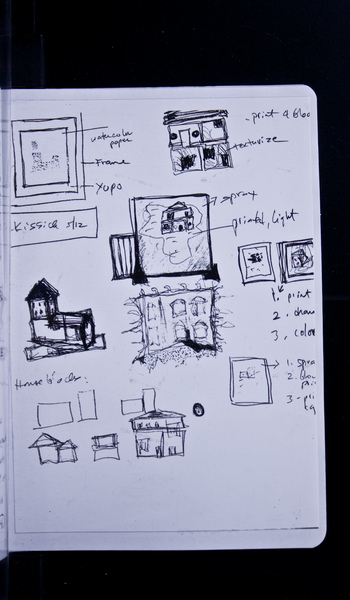 watercolor
paper
Frame
Yupo
print a Bloc
texturize
Kissick 5/12
spray
printed, light
1. print
2. chan
3. color
House blocks:
1. spra
2.
3 - pri